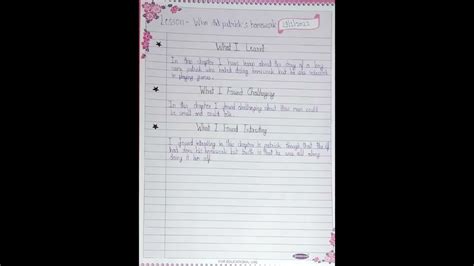 Lesson - Who did patrick's homework
What I Learnt
In this chapter I have learnt about the days of a boy
name patrick who hated doing homework but he was interested
in playing games.
What I Found Challenging
In this chapter I found challenging about how man could
be small and could talk.
What I Found Interesting
I found interesting in this chapter is patrick though that the elf
had done his homework but truth is that he was all along
doing it him self.